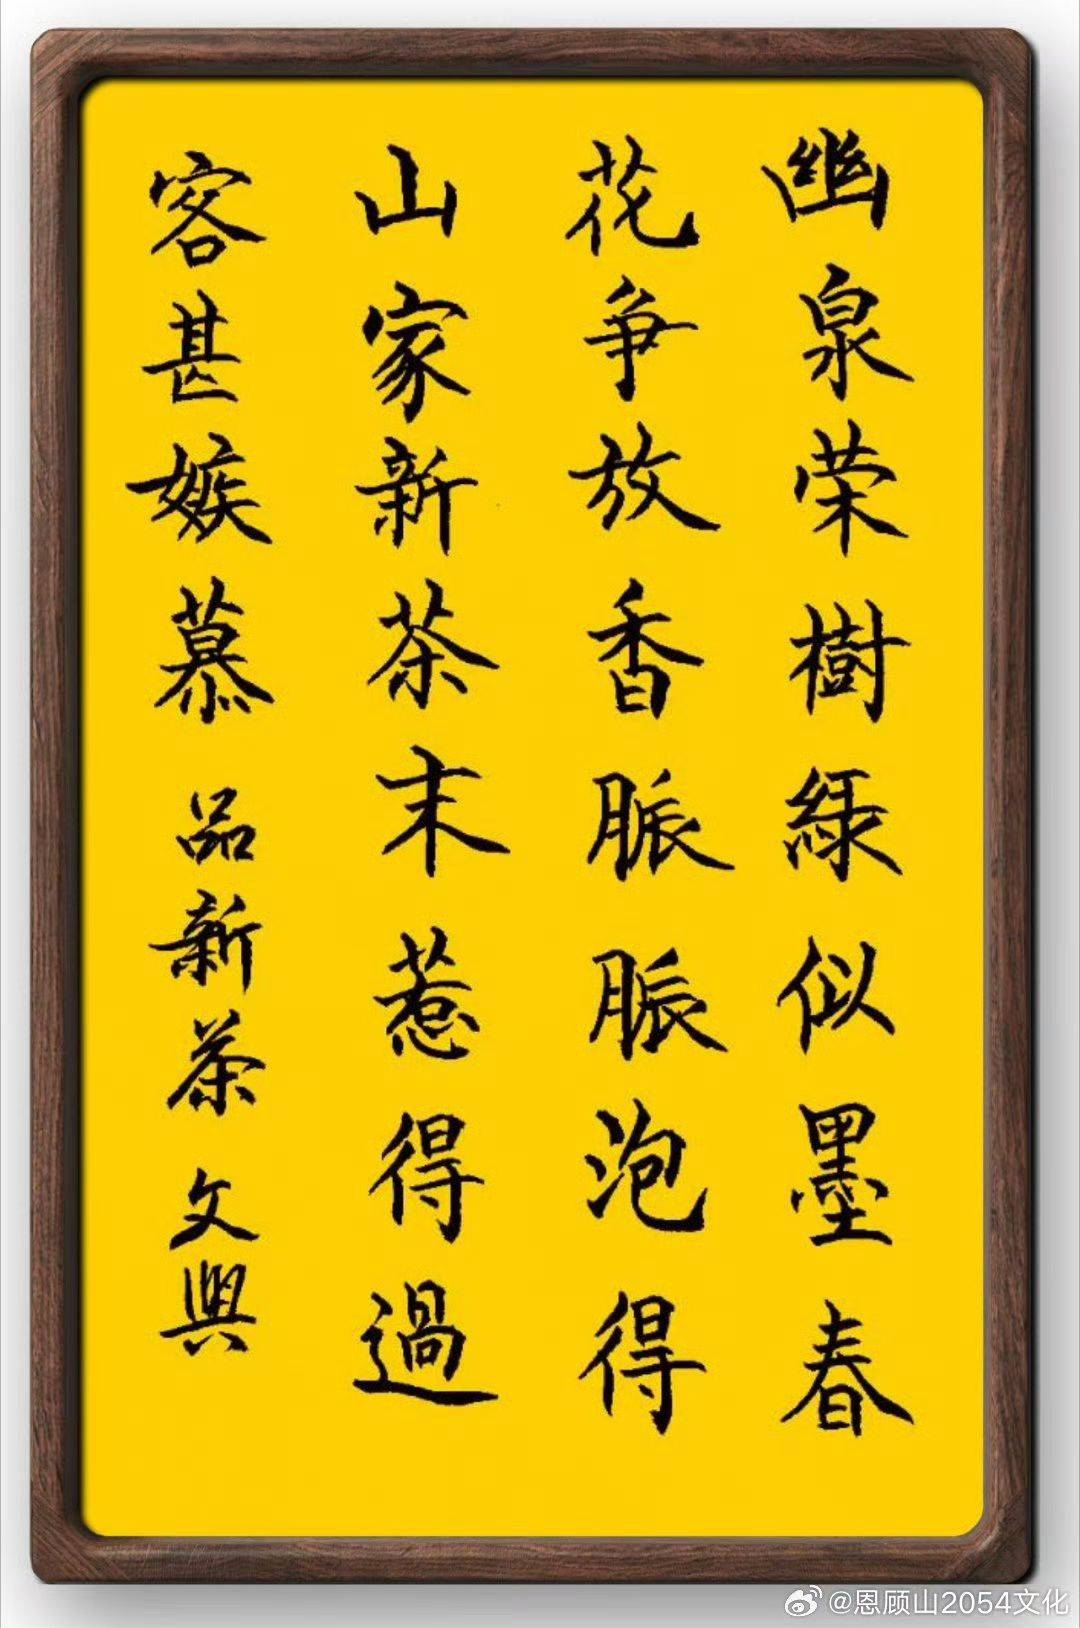 幽泉荣樹緑似墨春
花争放香脈脈泡得
山家新茶末惹得過
客甚嫉慕 品新茶 文興
@恩顾山2054文化